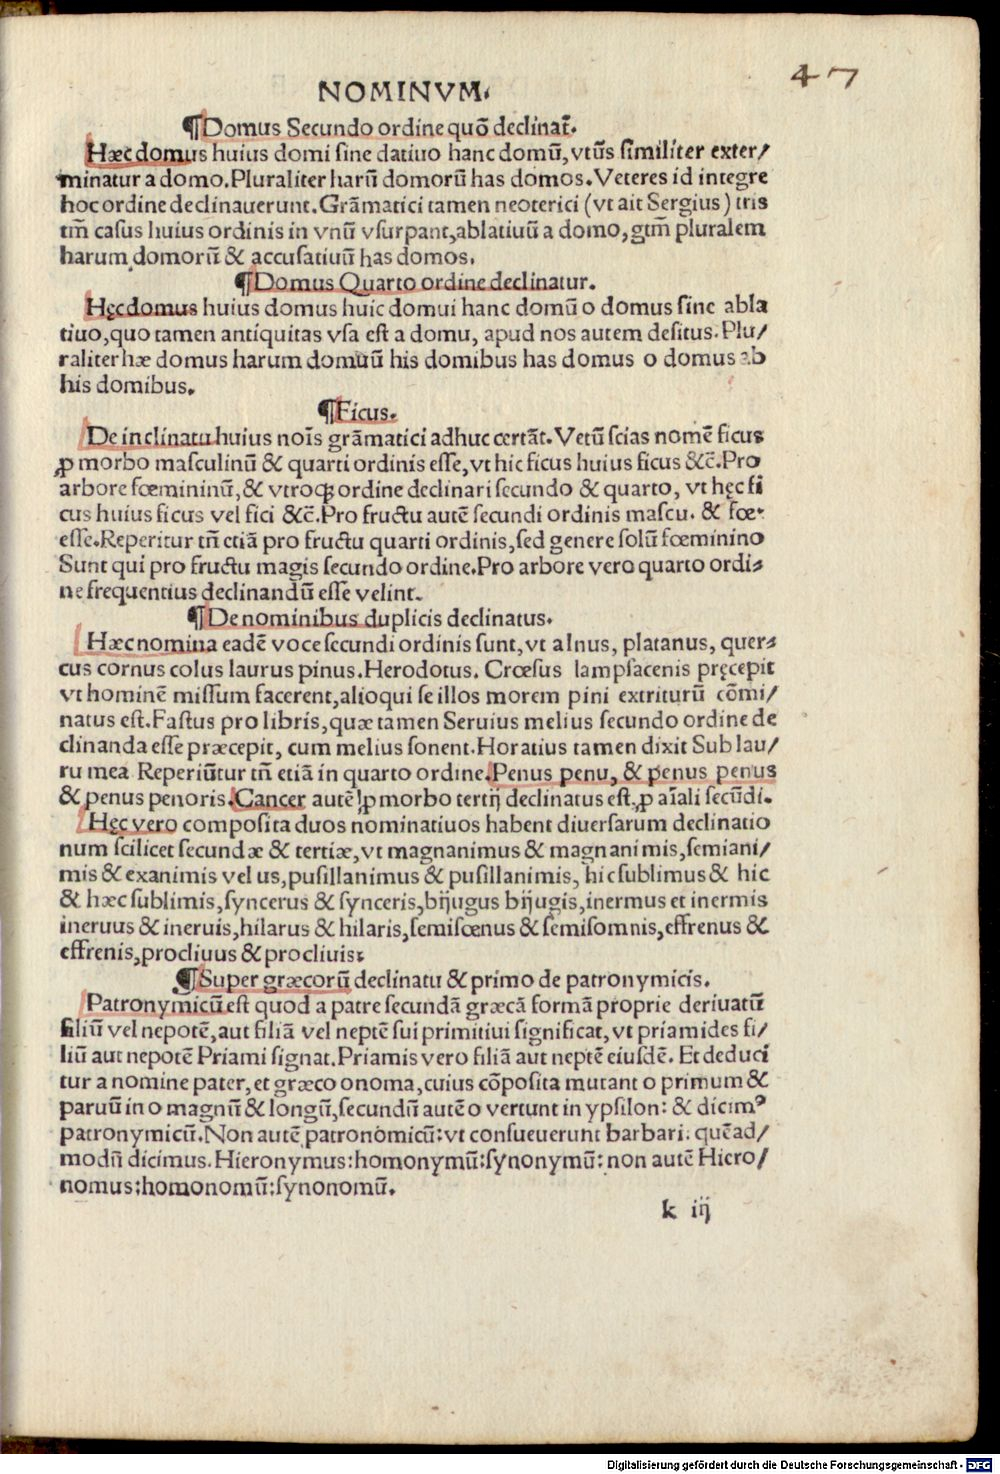 47
NOMINVM.
¶Domus Secundo ordine quō declinat̄.
Hæc domus huius domi sine datiuo hanc domū, vtūs similiter exter/
minatur a domo. Pluraliter harū domorū has domos. Veteres id integre
hoc ordine declinauerunt. Grāmatici tamen neoterici (vt ait Sergius) tris
tm̄ casus huius ordinis in vnū vsurpant, ablatiuū a domo, gtm̄ pluralem
harum domorū & accusatiuū has domos.
¶Domus Quarto ordine declinatur.
Hęc domus huius domus huic domui hanc domū o domus sine abla
tiuo, quo tamen antiquitas vsa est a domu, apud nos autem desitus. Plu/
raliter hæ domus harum domuū his domibus has domus o domus ab
his domibus.
¶Ficus.
De inclinatu huius noīs grāmatici adhuc certāt. Vetū scias nomē ficus
ꝓ morbo masculinū & quarti ordinis esse, vt hic ficus huius ficus &c̄. Pro
arbore fœmininū, & vtroqꝫ ordine declinari secundo & quarto, vt hęc fi
cus huius ficus vel fici &c̄. Pro fructu autē secundi ordinis mascu. & fœ.
esse. Reperitur tn̄ etiā pro fructu quarti ordinis, sed genere solū fœminino
Sunt qui pro fructu magis secundo ordine. Pro arbore vero quarto ordi⸗
ne frequentius declinandū esse velint.
¶De nominibus duplicis declinatus.
Hæc nomina eadē voce secundi ordinis sunt, vt alnus, platanus, quer⸗
cus cornus colus laurus pinus. Herodotus. Crœsus lampsacenis pręcepit
vt hominē missum facerent, alioqui se illos morem pini extriturū cōmi/
natus est. Fastus pro libris, quæ tamen Seruius melius secundo ordine de
clinanda esse præcepit, cum melius sonent. Horatius tamen dixit Sub lau/
ru mea Reperiūtur tn̄ etiā in quarto ordine. Penus penu, & penus penus
& penus penoris. Cancer autē ꝓ morbo tertij declinatus est, ꝓ aīali secūdi.
Hęc vero composita duos nominatiuos habent diuersarum declinatio
num scilicet secundæ & tertiæ, vt magnanimus & magnanimis, semiani/
mis & exanimis vel us, pusillanimus & pusillanimis, hic sublimus & hic
& hæc sublimis, syncerus & synceris, bijugus bijugis, inermus et inermis
ineruus & ineruis, hilarus & hilaris, semisœnus & semisomnis, effrenus &
effrenis, procliuus & procliuis:
¶Super græcorū declinatu & primo de patronymicis.
Patronymicū est quod a patre secundā græcā formā proprie deriuatū
filiū vel nepotē, aut filiā vel neptē sui primitiui significat, vt priamides fi/
liū aut nepotē Priami signat. Priamis vero filiā aut neptē eiusdē. Et deduci
tur a nomine pater, et græco onoma, cuius cōposita mutant o primum &
paruū in o magnū & longū, secundū autē o vertunt in ypsilon: & dicimꝰ
patronymicū. Non autē patronomicū: vt consueuerunt barbari. quēad/
modū dicimus. Hieronymus: homonymū: synonymū: non autē Hiero/
nomus: homonomū: synonomū.
k iij
Digitalisierung gefördert durch die Deutsche Forschungsgemeinschaft - DFG